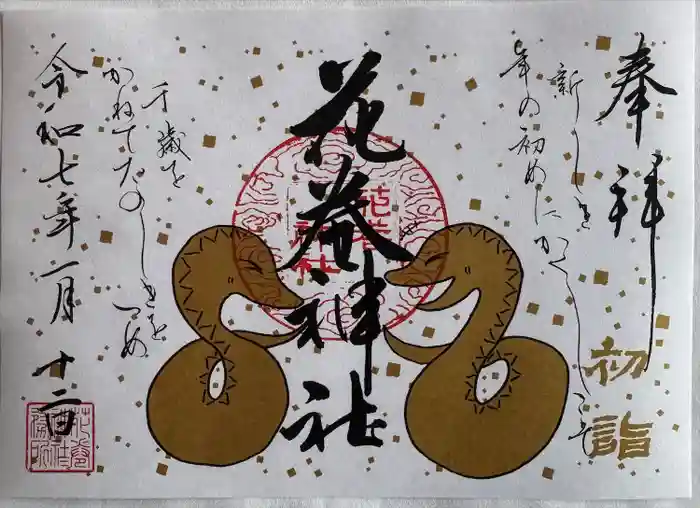 奉拝
初詣
新しき
年の初めにかくしこそ
花巻神社
花巻神社
千歳を
かねてたのしきをつめ
令和七年一月十二日
花巻神社社務所